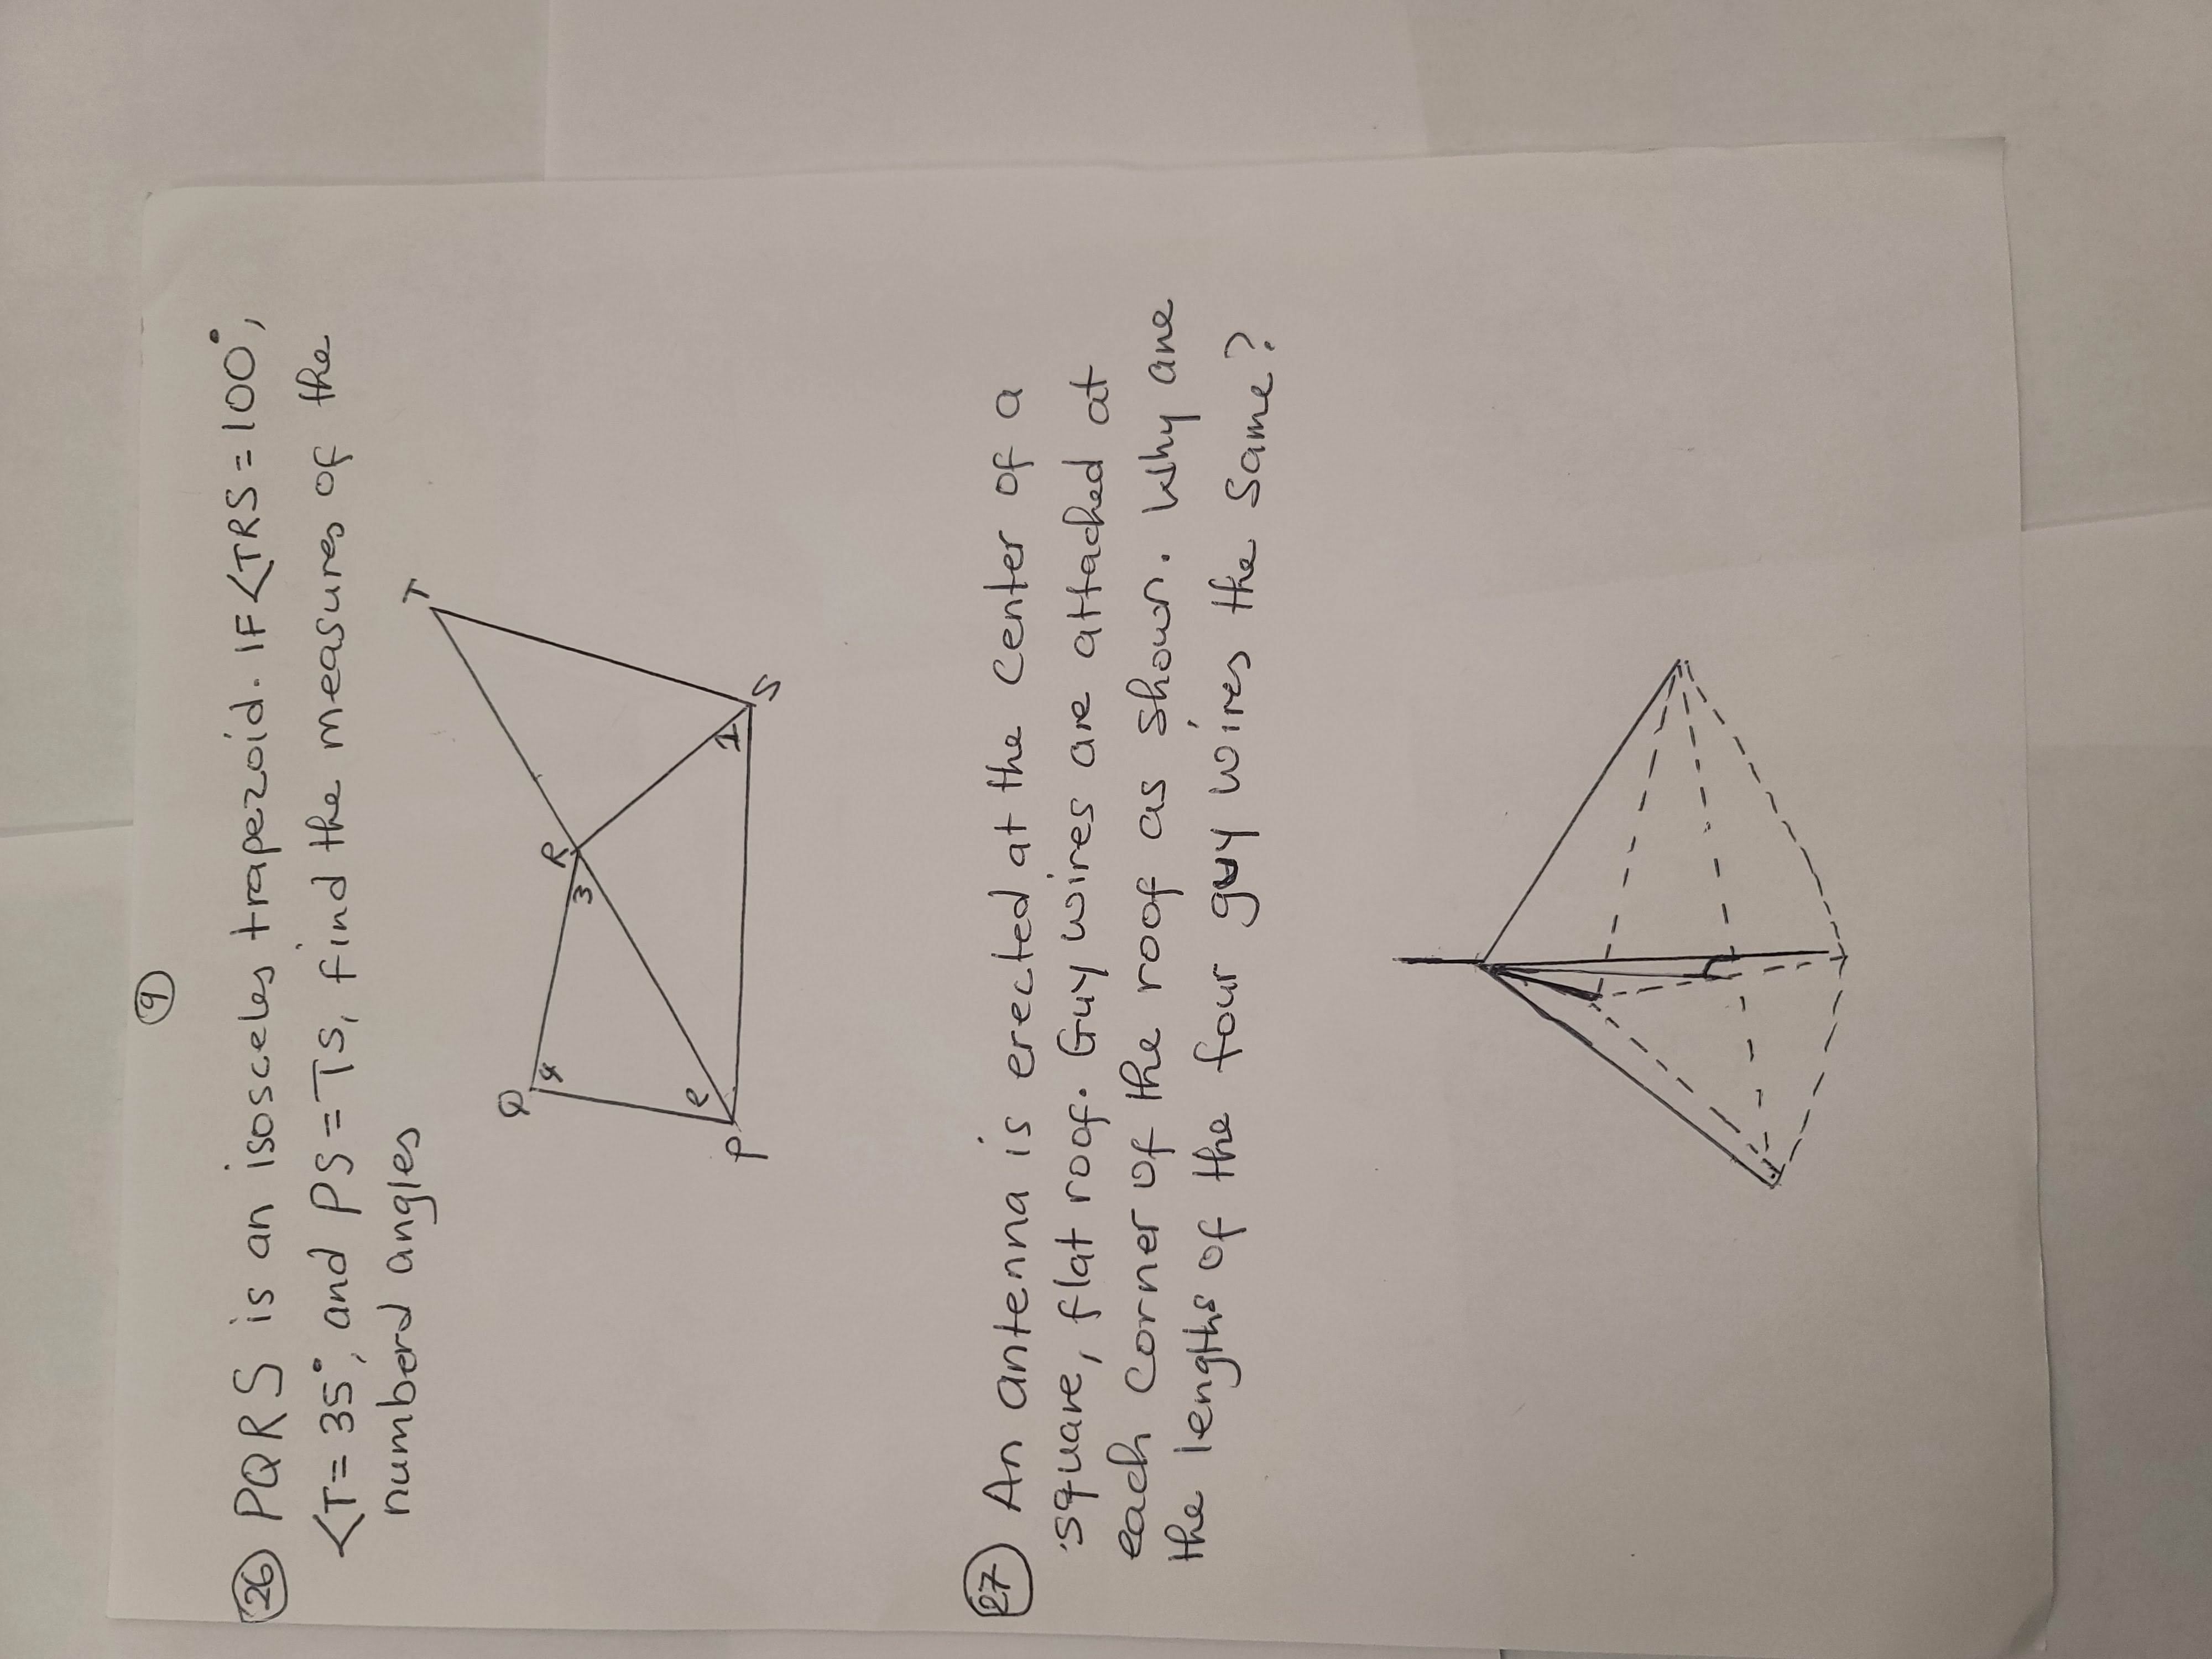 9
26 PQRS is an isosceles trapezoid. IF <TRS = 100°,
<T = 35°, and PS = TS, find the measures of the
numberd angles
T
R
Q
3
4
1
S
2
P
27 An antenna is erected at the center of a
square, flat roof. Guy wires are attached at
each corner of the roof as shown. Why are
the lengths of the four guy wires the same?